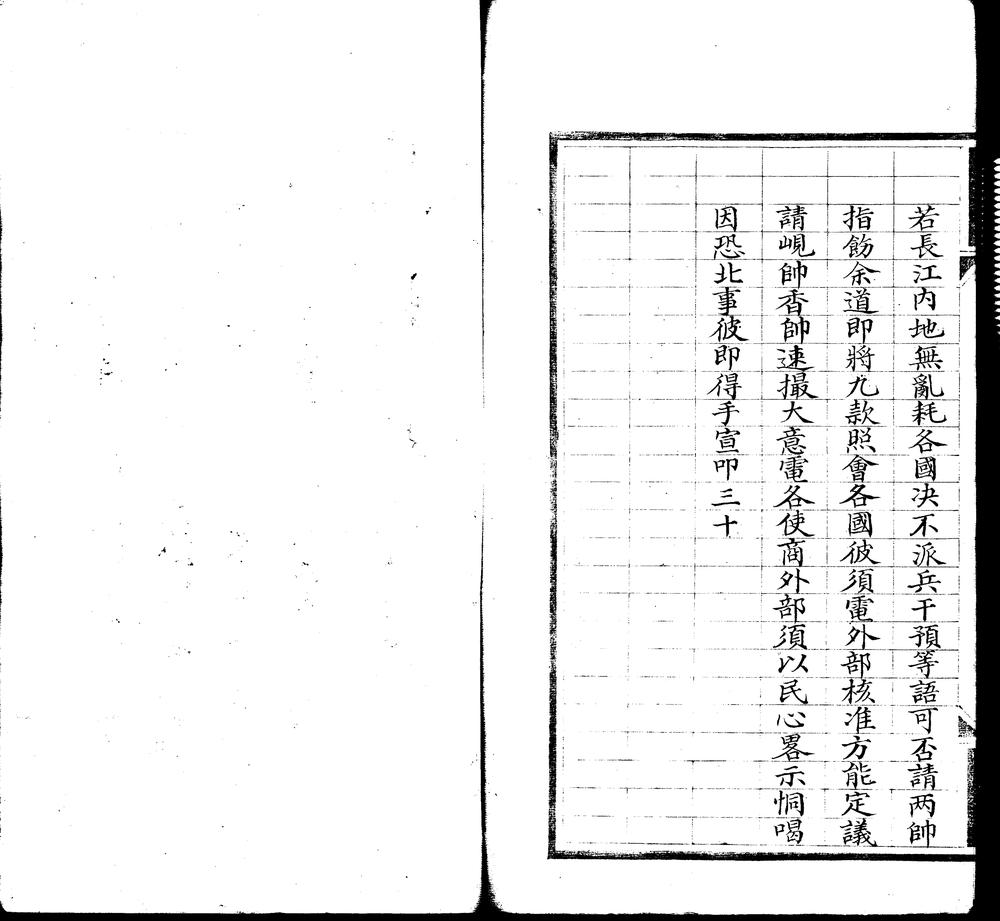 若長江内地無亂耗各國决不派兵干預等語可否請两帥
指飭余道即將九款照會各國彼須電外部核准方能定議
請峴帥香帥速撮大意電各使商外部須以民心畧示恫喝
因恐北事彼即得手宣叩三十